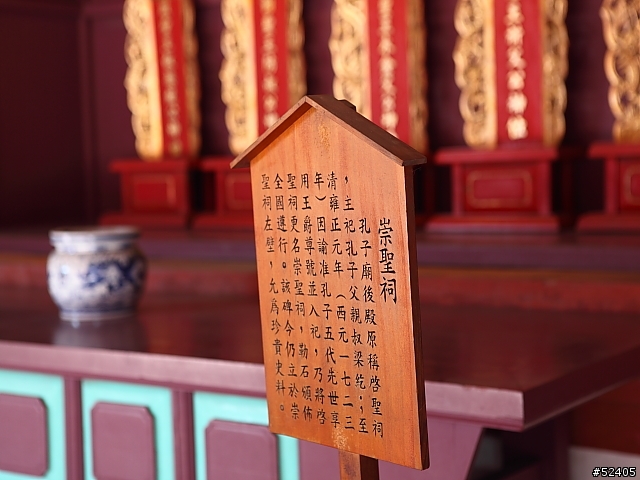 崇聖祠
孔子廟後殿原稱啓聖祠
，主祀孔子父親叔梁紇；至
清雍正元年（西元一七二三
年）因諭准孔子五代先世享
用王爵尊號並入祀，乃將啓
聖祠更名崇聖祠，勒石頒佈
全國遵行。該碑今仍立於崇
聖祠左壁，允爲珍貴史料。
#52405